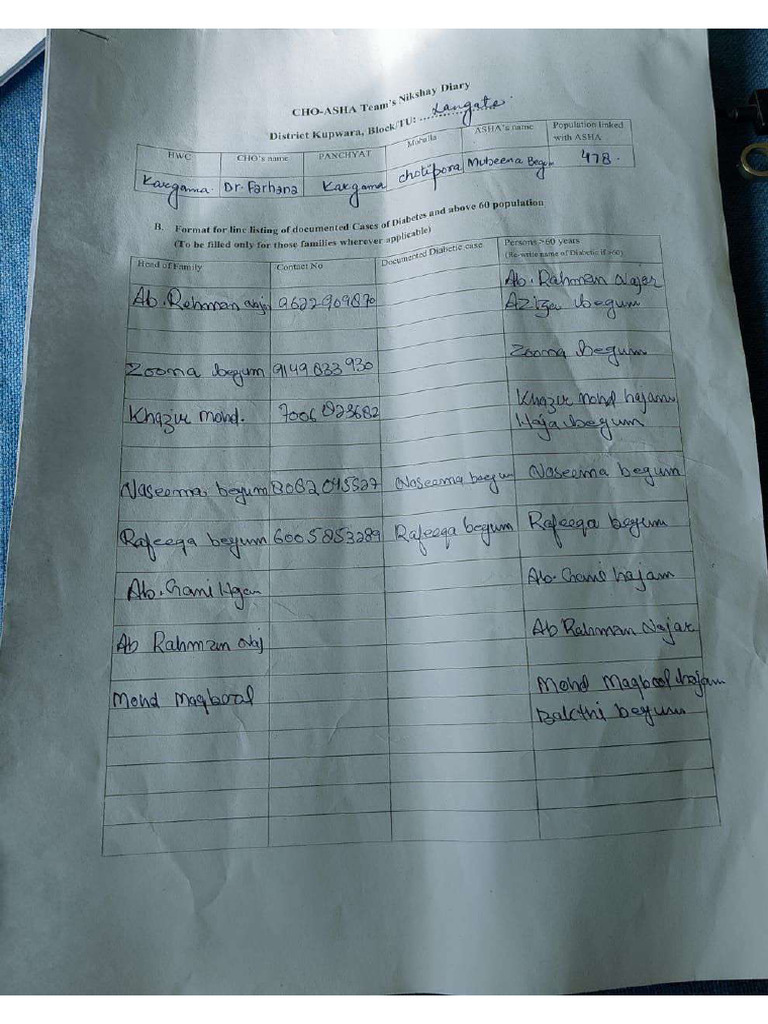 CHO-ASHA Team's Nikshay Diary
District Kupwara, Block/TU: Langate
HWC CHO's name PANCHYAT Mohalla ASHA's name Population linked with ASHA
Kargama Dr. Farhana Kargama Chotipora Mubeena Begum 478.
B. Format for line listing of documented Cases of Diabetes and above 60 population
(To be filled only for those families wherever applicable)
Head of Family Contact No Documented Diabetic case Persons >60 years
(Re-write name of Diabetic if >60)
Ab. Rehman 9622909870 Ab. Rahman Najar
Aziza begum
Zooma begum 9149833930 Zooma begum
Khazur mohd. 7006823682 Khazur mohd hajam
Haja begum
Naseema begum Naseema begum Naseema begum
Rafeeqa begum 6005853289 Rafeeqa begum Rafeeqa begum
Ab. Gani Ab. Gani hajam
Ab Rahman Naj Ab Rahman Najar
Mohd Maqbool Mohd Maqbool hajam
begum